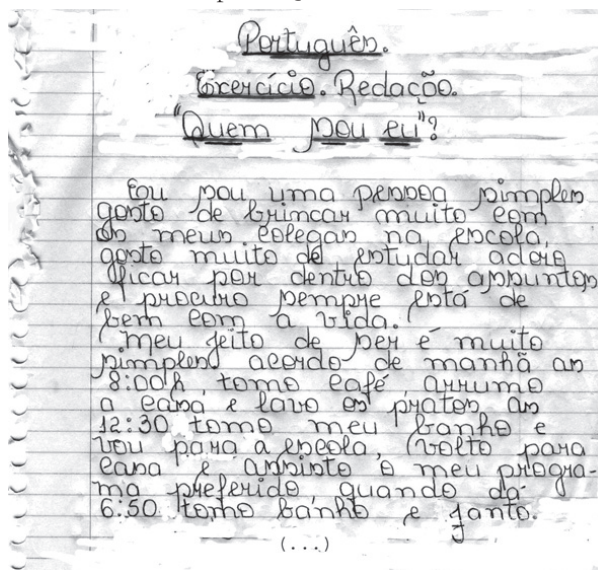 Português.
Exercício. Redação.
"Quem sou eu"?
Eou sou uma pessoa simples
gosto de brincar muito com
os meus colegas na escola,
gosto muito de estudar adoro
ficar por dentro dos assuntos
e procuro sempre está de
bem com a vida.
meu jeito de ser é muito
simples acordo de manhã as
8:00h tomo café arrumo
a casa e lavo os pratos as
12:30 tomo meu banho e
vou para a escola, volto para
casa e assisto o meu progra-
ma preferido quando dá
6:50 tomo banho e janto.
(...)